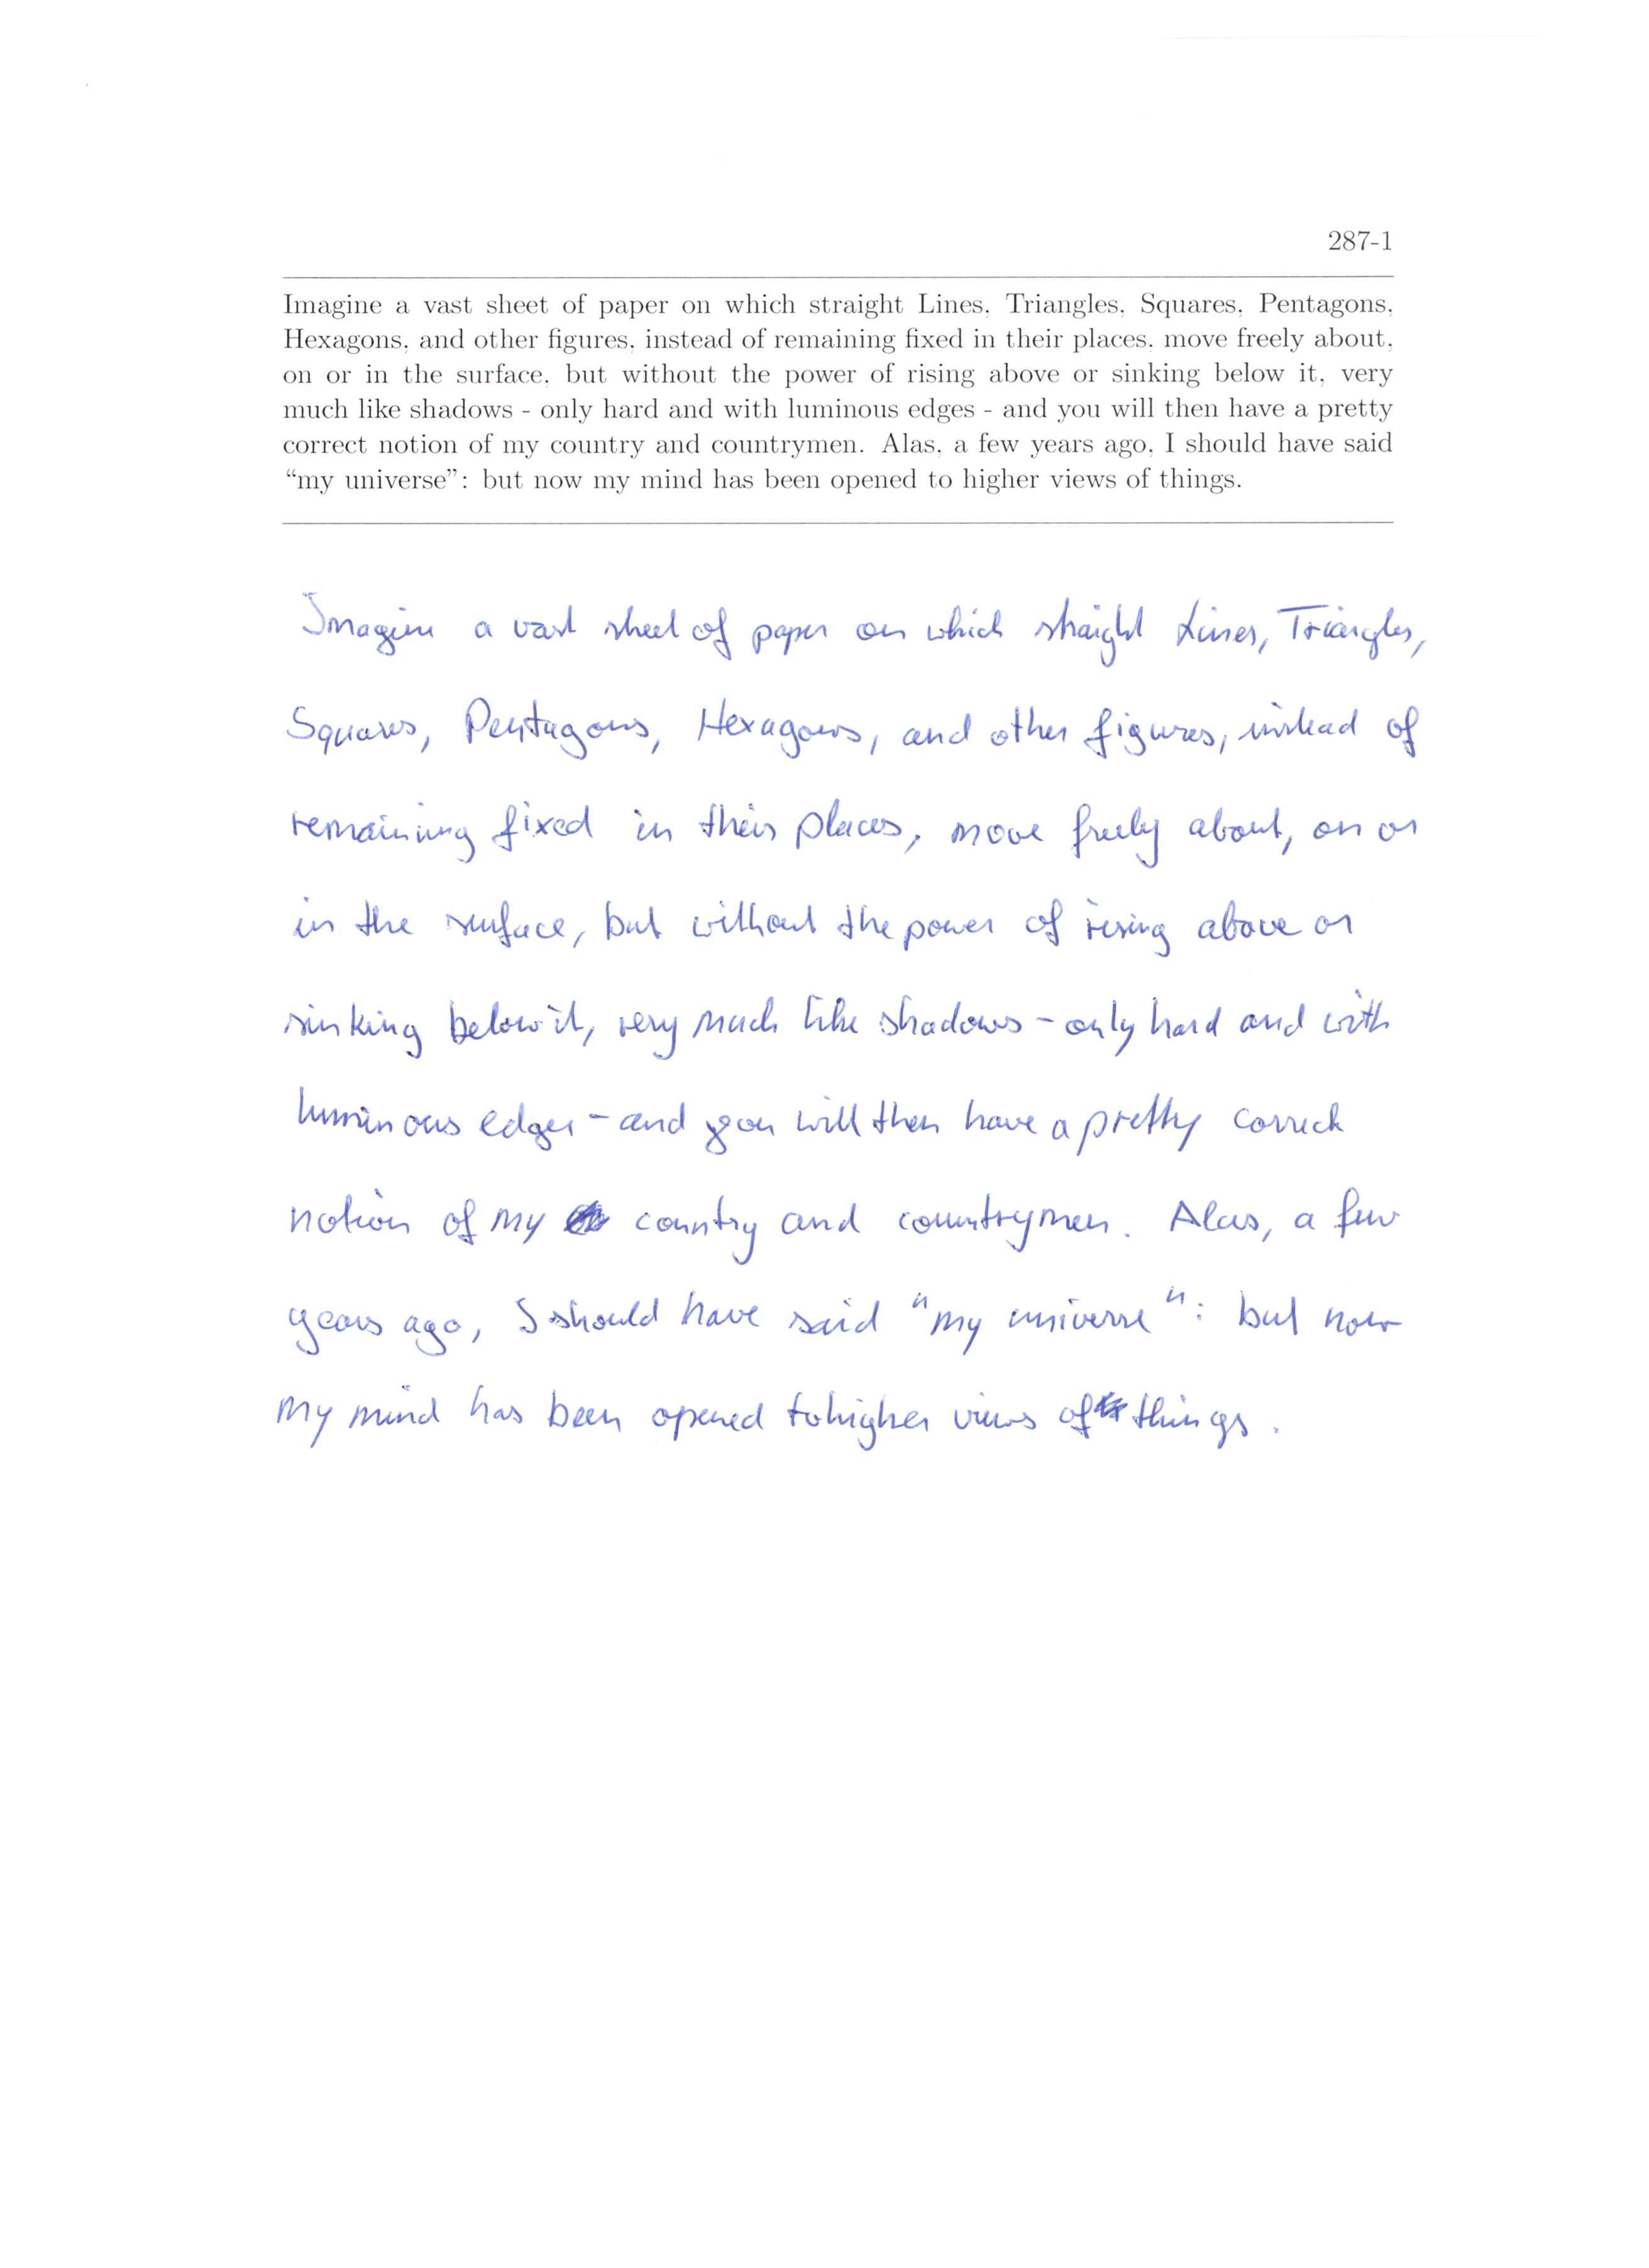 287-1
Imagine a vast sheet of paper on which straight Lines, Triangles, Squares, Pentagons,
Hexagons, and other figures, instead of remaining fixed in their places, move freely about,
on or in the surface, but without the power of rising above or sinking below it, very
much like shadows - only hard and with luminous edges - and you will then have a pretty
correct notion of my country and countrymen. Alas, a few years ago, I should have said
“my universe”: but now my mind has been opened to higher views of things.
Imagine a vast sheet of paper on which straight Lines, Triangles,
Squares, Pentagons, Hexagons, and other figures, instead of
remaining fixed in their places, move freely about, on or
in the surface, but without the power of rising above or
sinking below it, very much like shadows - only hard and with
luminous edges - and you will then have a pretty correct
notion of my country and countrymen. Alas, a few
years ago, I should have said "my universe": but now
my mind has been opened to higher views of things.